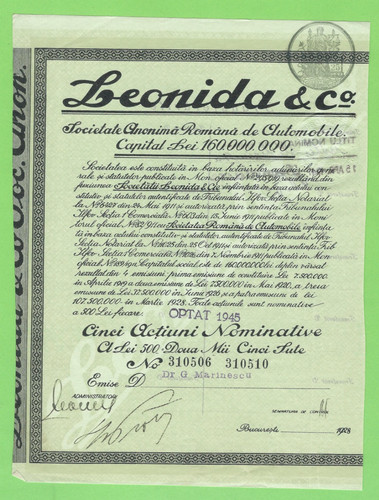 Leonida & Co.
Societate Anonimă Română de Automobile.
Capital Lei 160.000.000.
Societatea este constituită în baza hotărîrilor adunărilor gene-
rale și statutelor publicate în Mon. oficial No rezultând din
fuziunea Societății Leonida & Cie înființată în baza
și statutelor autentificate de Tribunalul Ilfov Secția Notariat
la No din 26 Mai 1911 și autorizată prin sentința Tribunalului
Ilfov Secția I Comercială No din 15 Junie 1911 publicate în Moni-
torul oficial No Societatea Română de Automobile înființa-
tă în baza statutelor autentificate de Tribunalul Ilfov
Secția Notariat la No din 25 Oct. 1911 și autorizată prin sentința Trib.
Ilfov Secția I Comercială No din 7 Noembrie 1911 publicată în Mon.
oficial No Capitalul social este de 160.000.000 Lei deplin vărsat
rezultat din 4 emisiuni, prima emisiune de constituire Lei 7.500.000
în Aprilie 1919 a doua emisiune de Lei 7.500.000 în Mai 1920, a treia
emisiune de Lei 37.500.000 în Junie 1926 și a patra emisiune de Lei
107.500.000 în Martie 1928. Toate acțiunile sunt nominative
a 500 Lei fiecare.
OPTAT 1945
Cinci Acțiuni Nominative
A Lei 500 - Doua Mii Cinci Sute
No 310506 310510
Emise D Dr G. Marinescu
ADMINISTRATORI
SEMNATURA DE CONTROL
București 1928
Leonida & Co. Soc. Anon.
TITLU NOMINATIV